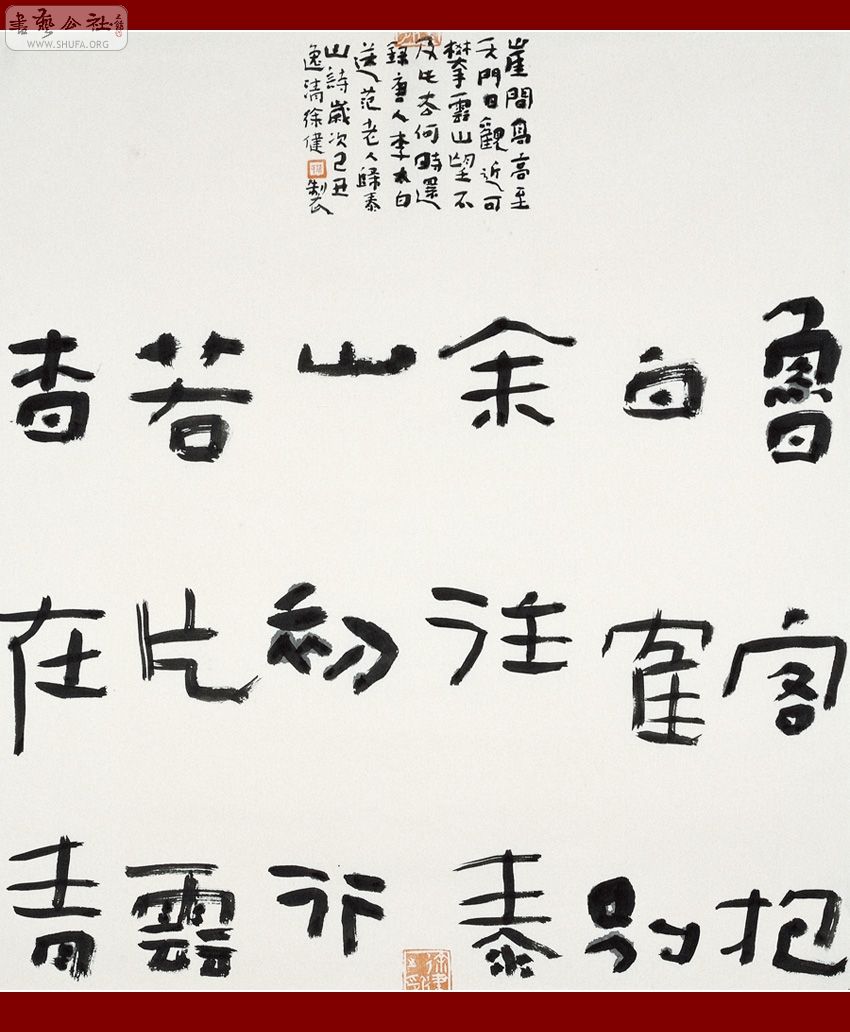 書藝公社
WWW.SHUFA.ORG
魯客抱
白隺別
余往泰
山初行
若片雲
杳在青
崖間髙高至
天門日觀近可
攀雲山望不
及此去何時還
錄唐人李太白
送范老人歸泰
山詩歲次己丑
逸清徐健製